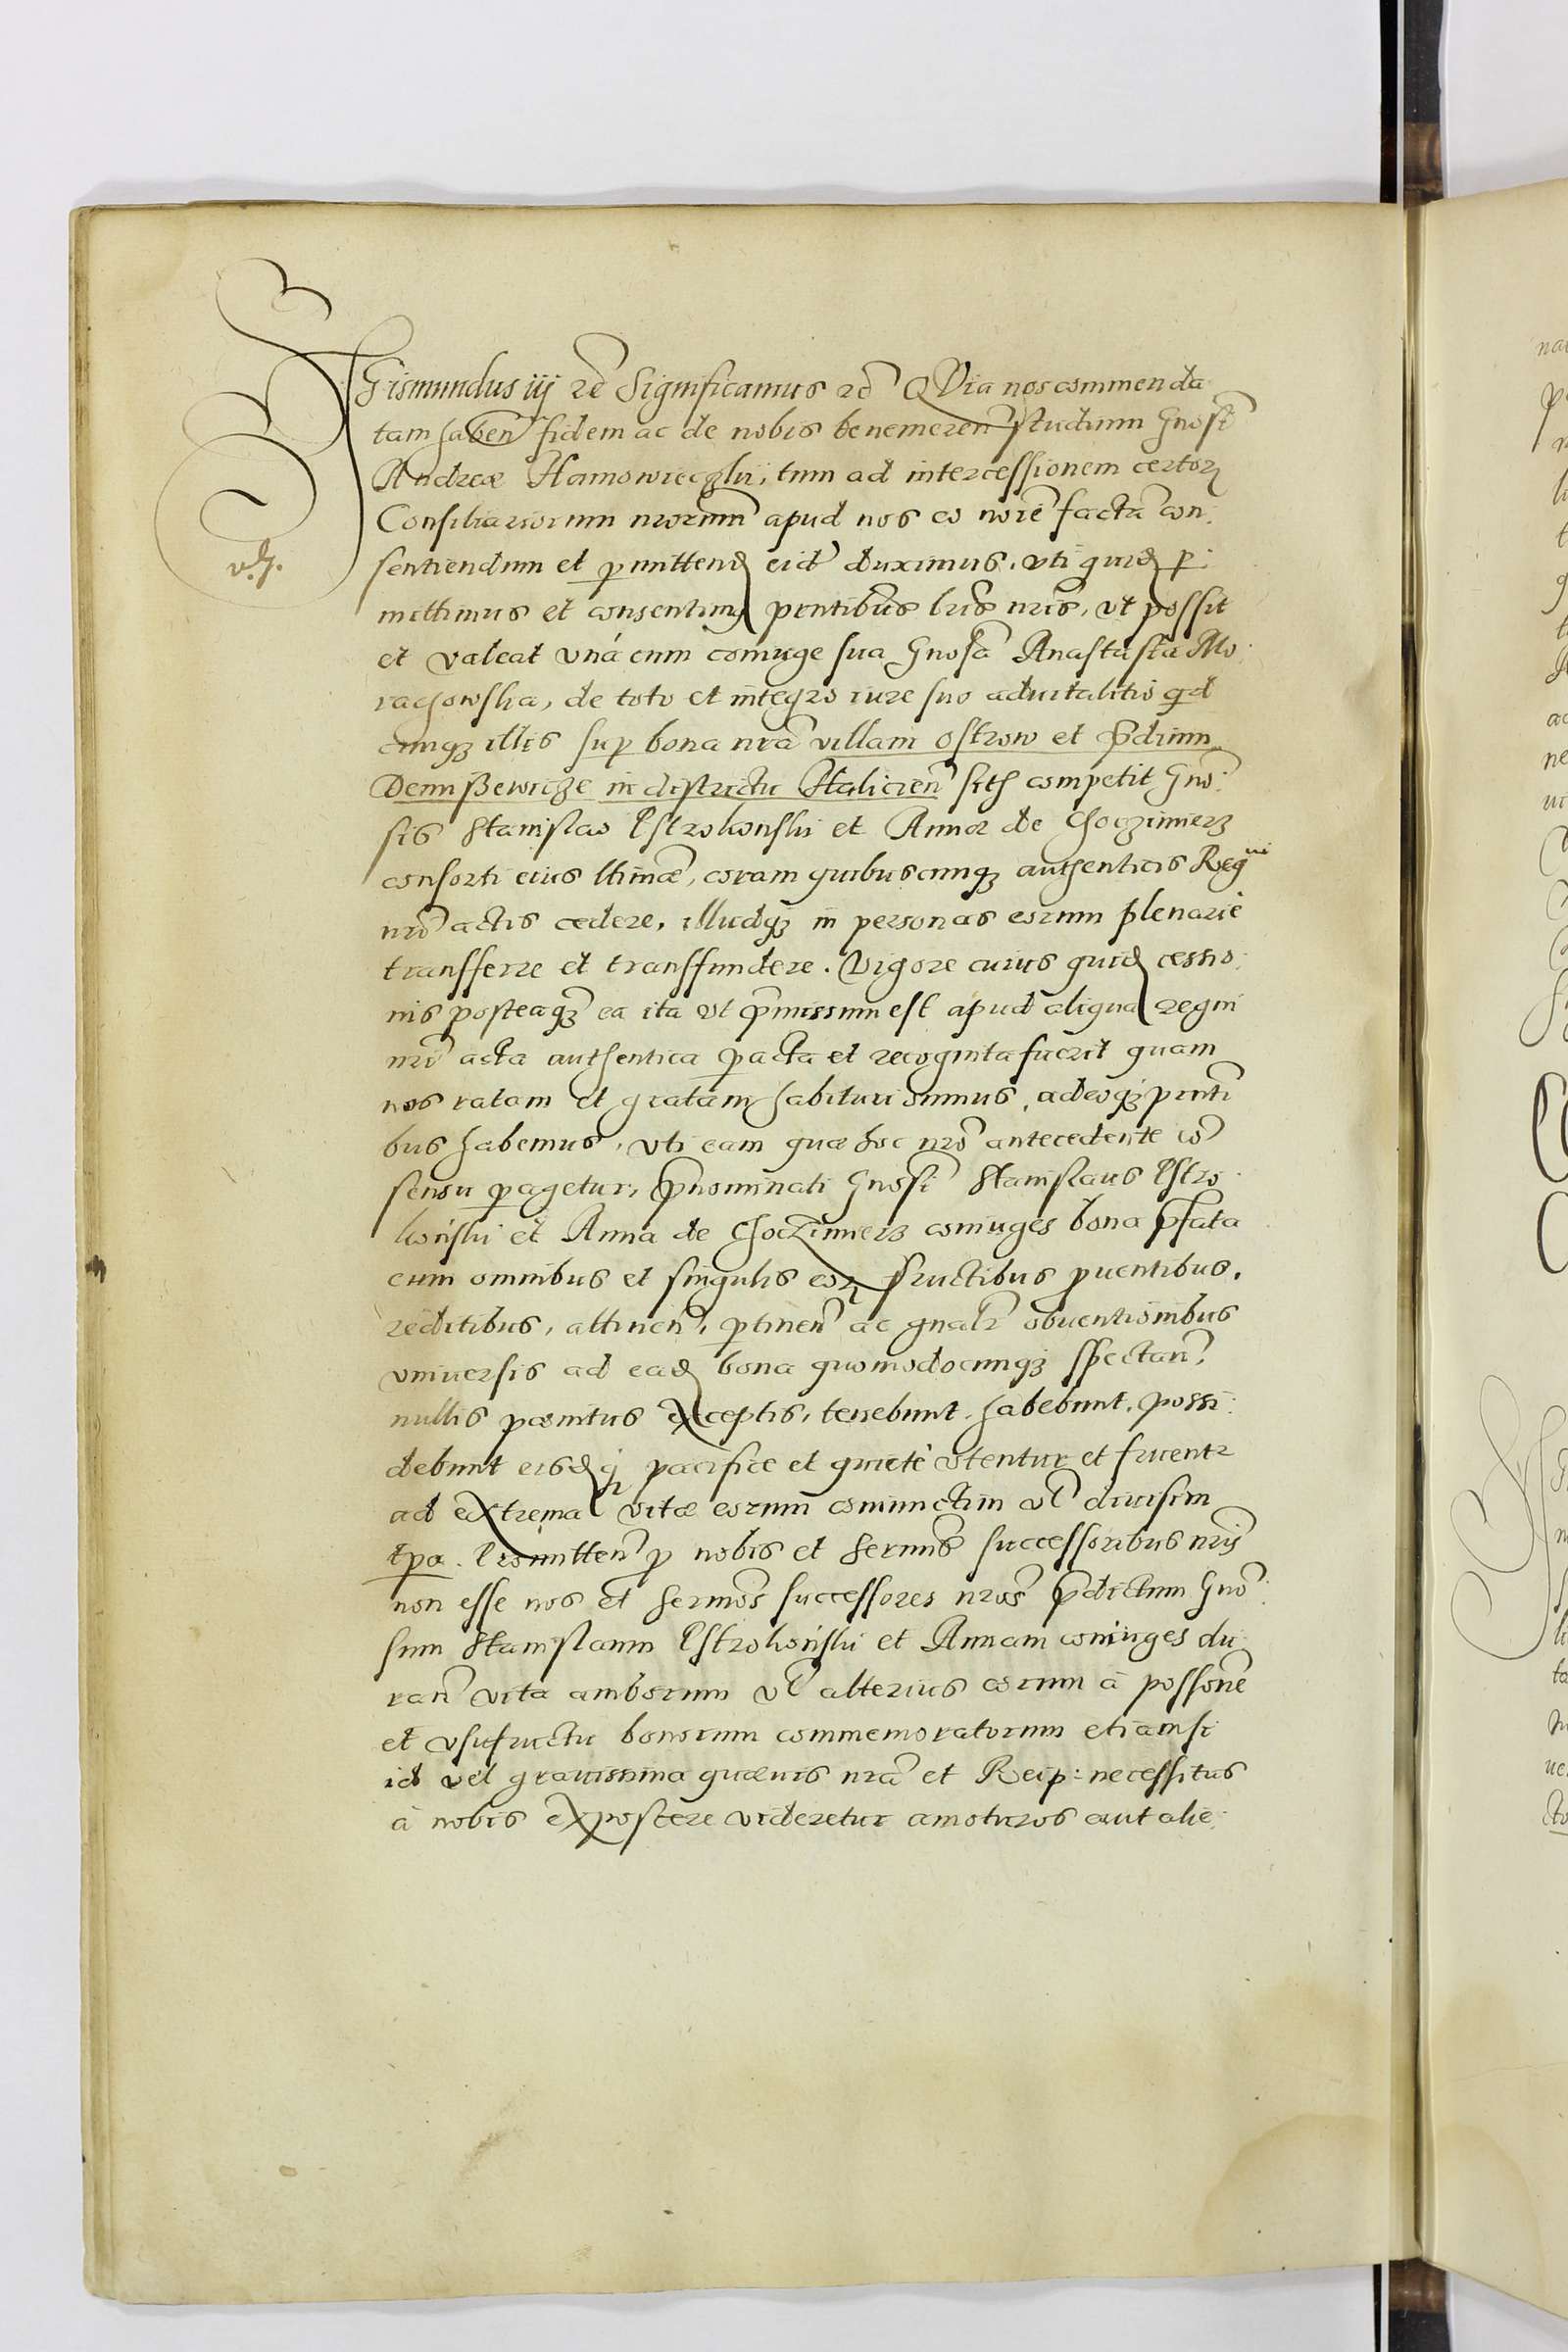 Sigismundus iij rc̃ Significamus rc̃ QVia nos commenda
tam haben̄ fidem ac de nobis benemeren̄ studium Gnosi
Andreæ Hamowieczki, tum ad intercessionem certorꝝ
Consiliariorum nrorum̃ apud nos eo noiẽ factã con,
v. h.
sentiendum et ꝑmittendꝫ eid̃ duximus, vti quidꝫ ꝑ:
mittimus et consentimꝰ pñtibus lris nris, vt possit
et valeat vná cum coniuge sua Gnosã Anastasia Mo
rachowska, de toto et integro iure suo aduitalitio qd
cunqꝫ illis suꝑ bona nrã villam Ostrow et p̃dium
Demißewicze in districtu Halicien̄ sitꝫ competit Gno:
sis Stanislao Pstrokonski et Annæ de Choczimierz
consorti eius ltimæ, coram quibuscunqꝫ authenticis Regni
nrĩ actis cedere, illudqꝫ in personas eorum plenariè
transferre et transfundere. Vigore cuius quidꝫ cessio:
nis posteaqꝫ ea ita vt p̃missum est apud aliquaꝫ regni
nrĩ acta authentica ꝑacta et recognita fuerit quam
nos ratam et gratam habituri sumus, adeoqꝫ pñti
bus habemus, vti eam quæ hoc nrõ antecedente cõ
sensu ꝑagetur, p̃nominati Gnosi Stanislaus Pstro
koński et Anna de Choczimierz coniuges bona p̃fata
cum omnibus et singulis eorꝝ fructibus ꝓuentibus,
reditibus, attinen̄, ꝑtinen̄ ac gnalr̃ obuentionibus
vniuersis ad eadꝫ bona quomodocunqꝫ spectan̄,
nullis pænitus exceptis, tenebunt, habebunt, possi:
debunt eisdꝫqꝫ pacifice et quietè vtentur et fruentr
ad extrema vitæ eorum coniunctim vl̃ diuisim
tpa. Promitten̄ ꝓ nobis et Sermis̃ successoribus nris̃
non esse nos et Sermos̃ successores nros̃ p̃dictum Gno:
sum Stanislaum Pstrokoński et Annam coniuges du
ran̄ vita amborum vl̃ alterius eorum à possonẽ
et vsufructu bonorum commemoratorum etiamsi
id vel grauissima quæuis nrã et Reip: necessitas
à nobis exposcere videretur amoturos aut alie: